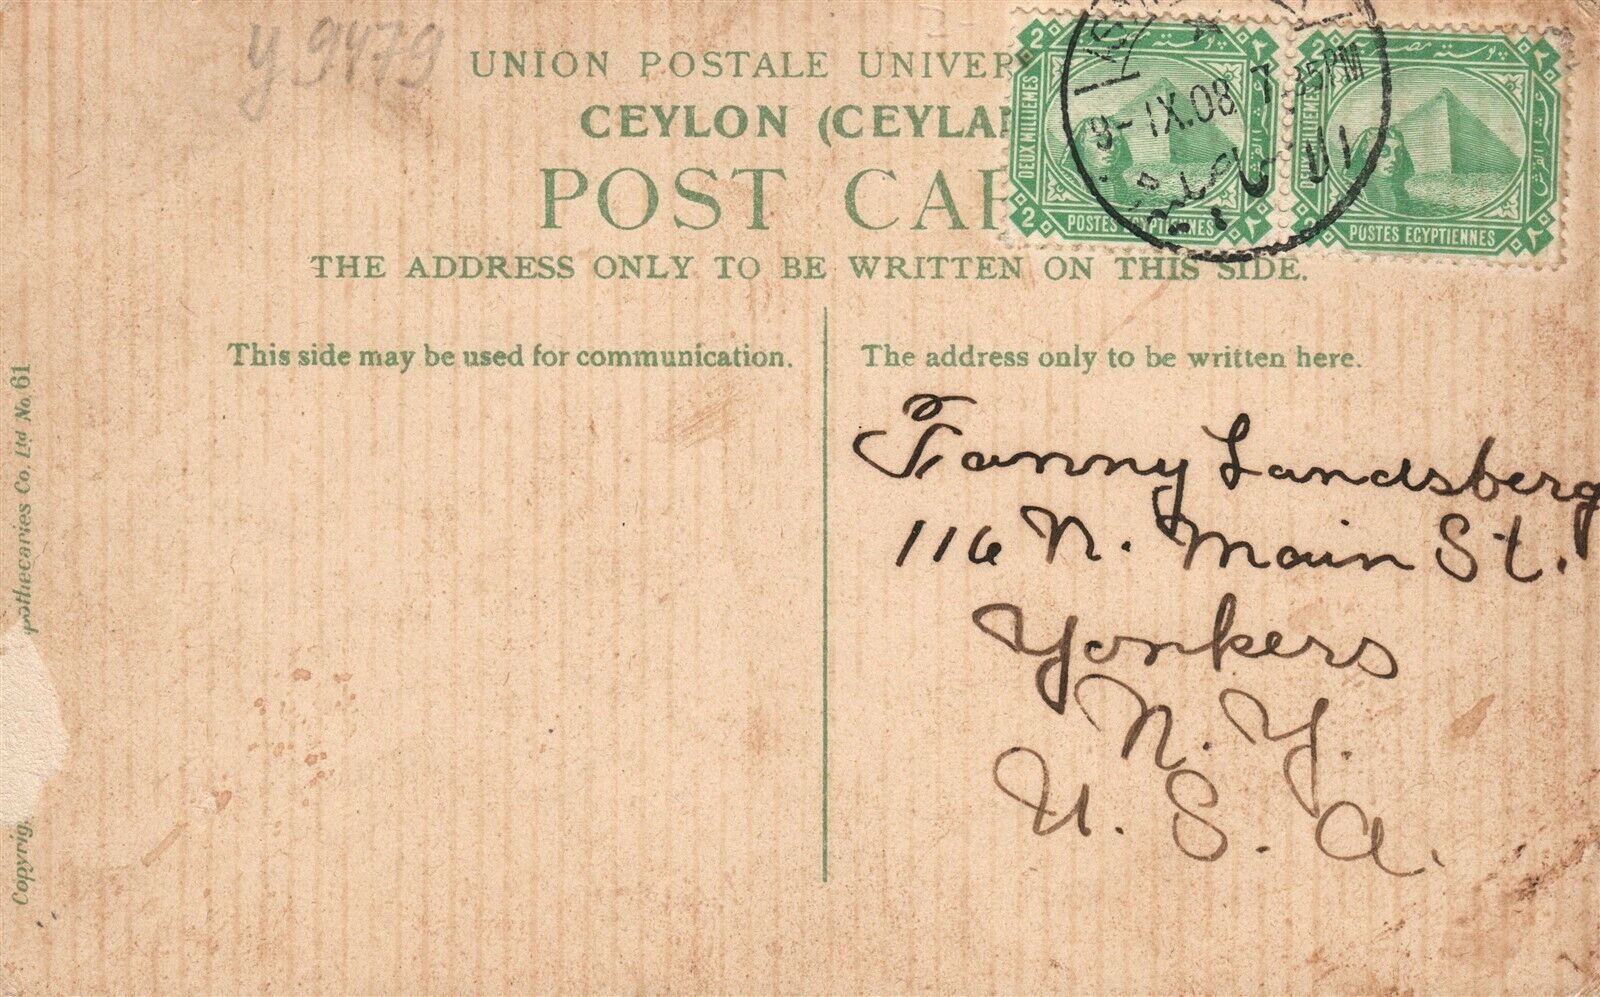 y 9479
UNION POSTALE UNIVER
CEYLON (CEYLA
POST CAR
THE ADDRESS ONLY TO BE WRITTEN ON THIS SIDE.
2 بوسته 2
DEUX MILLIEMES
2 POSTES EGYPTIENNES ٢
٢ بوستة مصرية ٢
POSTES EGYPTIENNES ٢
9-IX.08 7 35PM
This side may be used for communication.
The address only to be written here.
Fanny Landsberg
116 N. Main St.
Yonkers
N.Y.
U.S.A.
Copyrig
pothecaries Co. Ltd No. 61